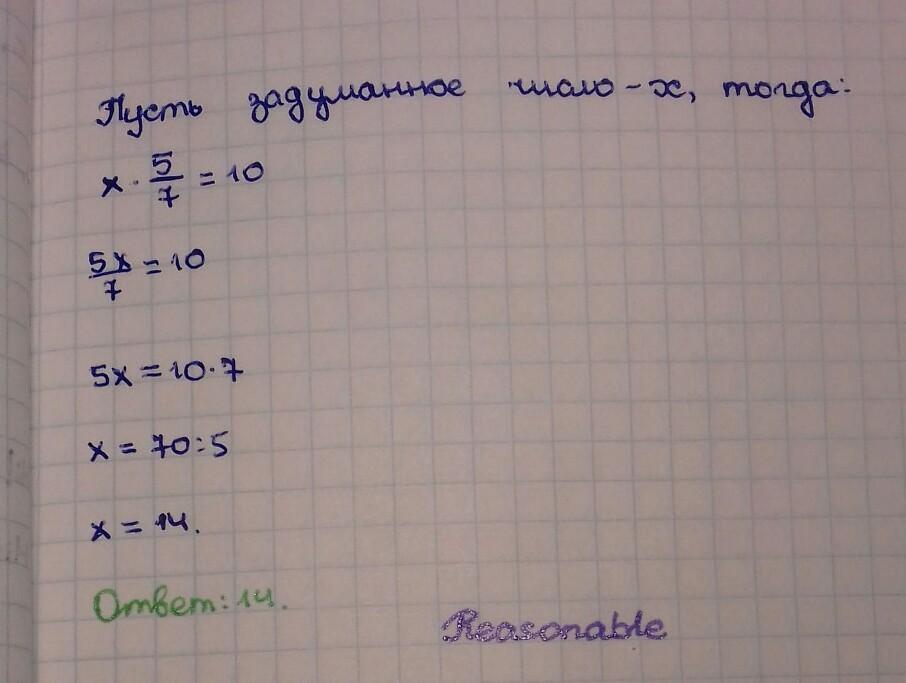 Пусть задуманное число - x, тогда:
x · 5/7 = 10
5x/7 = 10
5x = 10 · 7
x = 70 : 5
x = 14.
Ответ: 14.
Reasonable